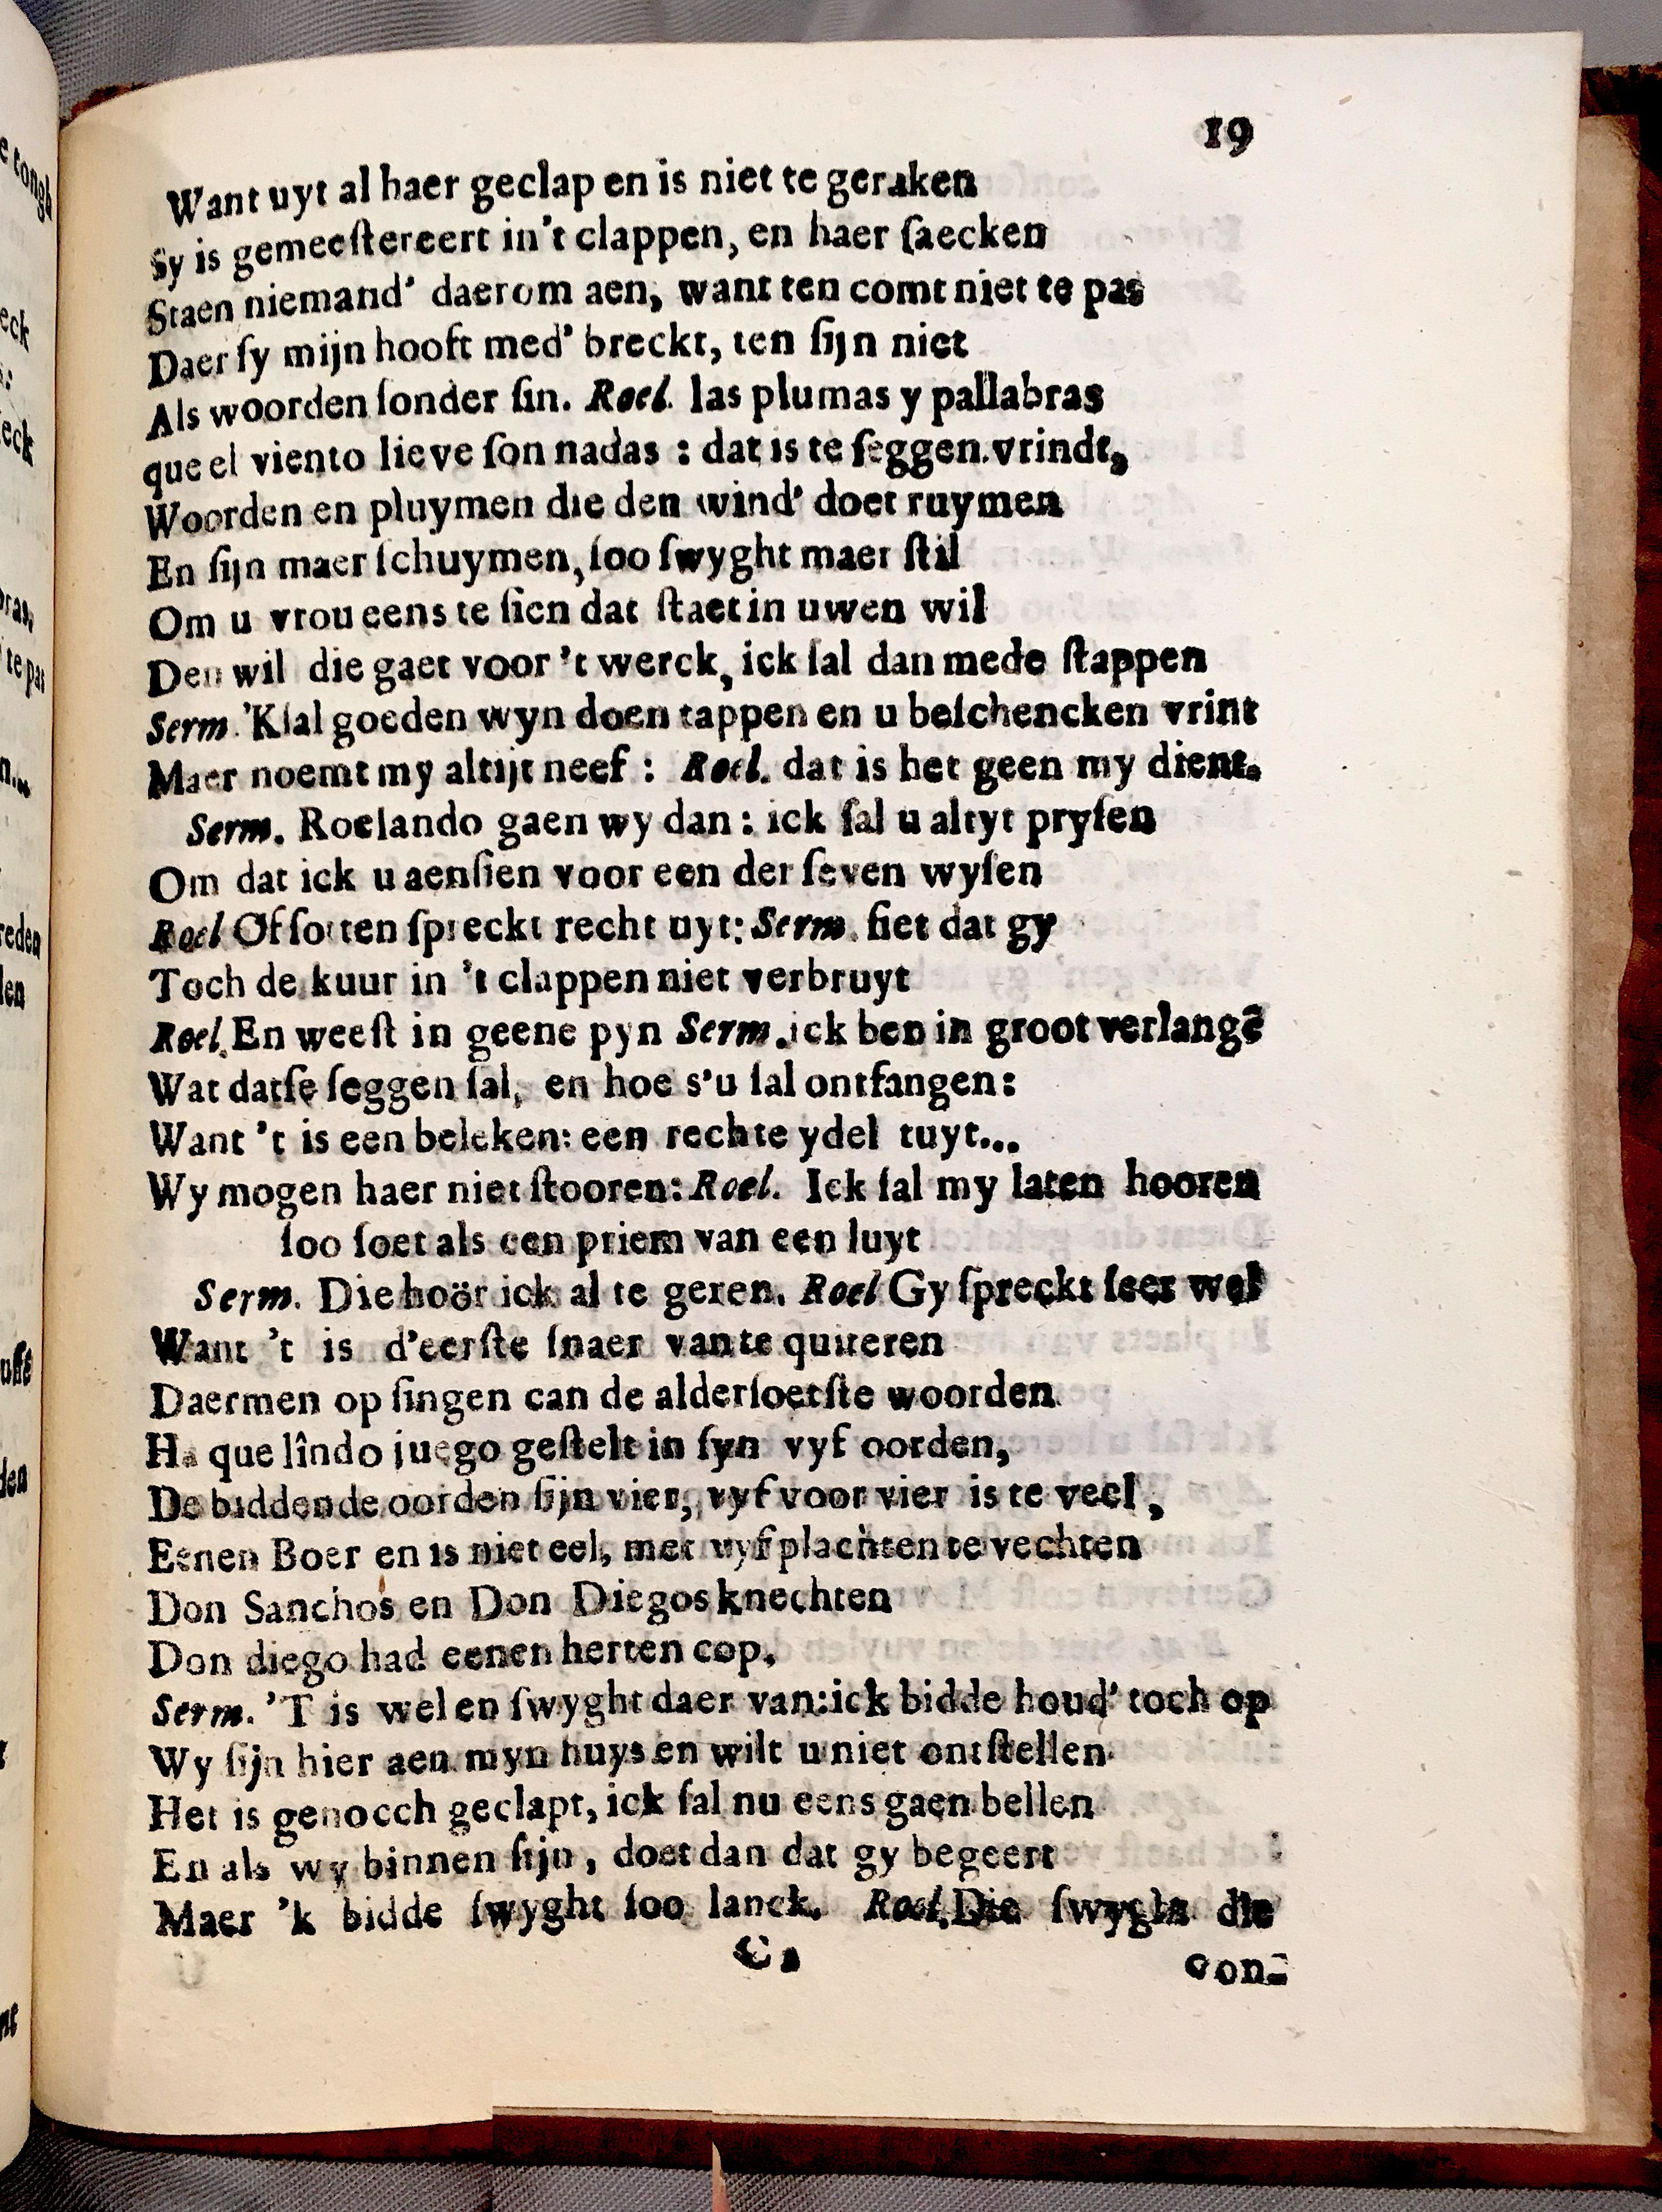 19
Want uyt al haer geclap en is niet te geraken
Sy is gemeeſtereert in't clappen, en haer ſaecken
Staen niemand' daerom aen, want ten comt niet te pas
Daer ſy mijn hooft med' breckt, ten ſijn niet
Als woorden ſonder ſin. Roel. las plumas y pallabras
que el viento lieve ſon nadas : dat is te ſeggen vrindt,
Woorden en pluymen die den wind' doet ruymen
En ſijn maer ſchuymen, ſoo ſwyght maer ſtil
Om u vrou eens te ſien dat ſtaet in uwen wil
Den wil die gaet voor 't werck, ick ſal dan mede ſtappen
Serm. 'Kſal goeden wyn doen tappen en u beſchencken vrint
Maer noemt my altijt neef : Roel. dat is het geen my dient.
Serm. Roelando gaen wy dan : ick ſal u altyt pryſen
Om dat ick u aenſien voor een der ſeven wyſen
Roel Of ſotten ſpreckt recht uyt: Serm. ſiet dat gy
Toch de kuur in 't clappen niet verbruyt
Roel. En weeſt in geene pyn Serm. ick ben in groot verlangē
Wat datſe ſeggen ſal, en hoe s'u ſal ontfangen:
Want 't is een beleken: een rechte ydel tuyt...
Wy mogen haer niet ſtooren: Roel. Ick ſal my laten hooren
ſoo ſoet als een priem van een luyt
Serm. Die hoör ick al te geren. Roel Gy ſpreckt ſeer wel
Want 't is d'eerſte ſnaer van te quiteren
Daermen op ſingen can de alderſoetſte woorden
Ha que lîndo juego geſtelt in ſyn vyf oorden,
De biddende oorden ſijn vier, vyf voor vier is te veel,
Eenen Boer en is niet eel, met vyf plachten te vechten
Don Sanchos en Don Diegos knechten
Don diego had eenen herten cop,
Serm. 'T is wel en ſwyght daer van: ick bidde houd' toch op
Wy ſijn hier aen myn huys en wilt u niet ontſtellen
Het is genoech geclapt, ick ſal nu eens gaen bellen
En als wy binnen ſijn, doet dan dat gy begeert
Maer 'k bidde ſwyght ſoo lanck. Roel. Die ſwyght die
con-